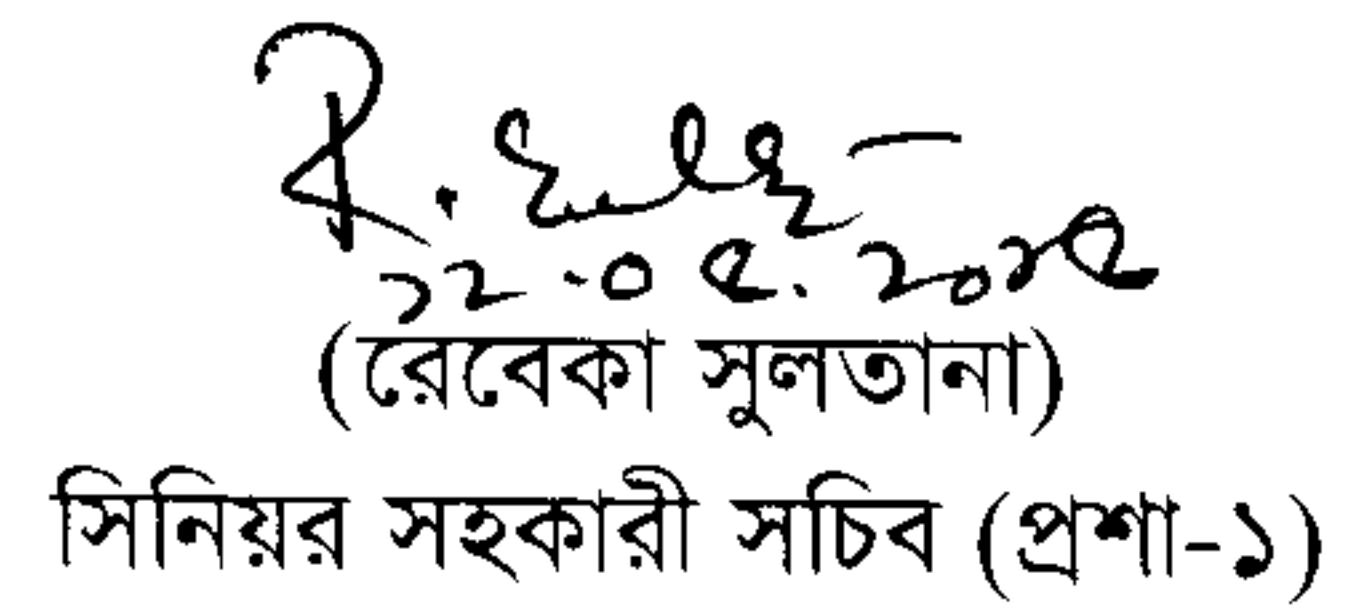 ১২.০৫.২০২৫
(রেবেকা সুলতানা)
সিনিয়র সহকারী সচিব (প্রশা-১)